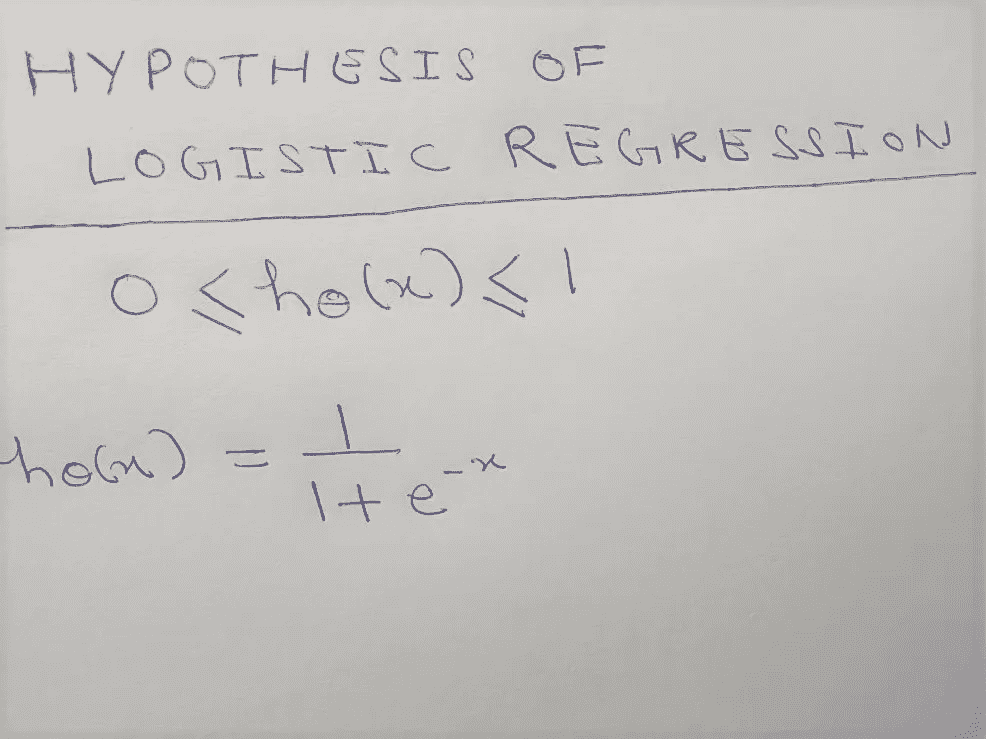 HYPOTHESIS OF
LOGISTIC REGRESSION
0 ≤ hθ(x) ≤ 1
hθ(x) = 1 / 1 + e^-x